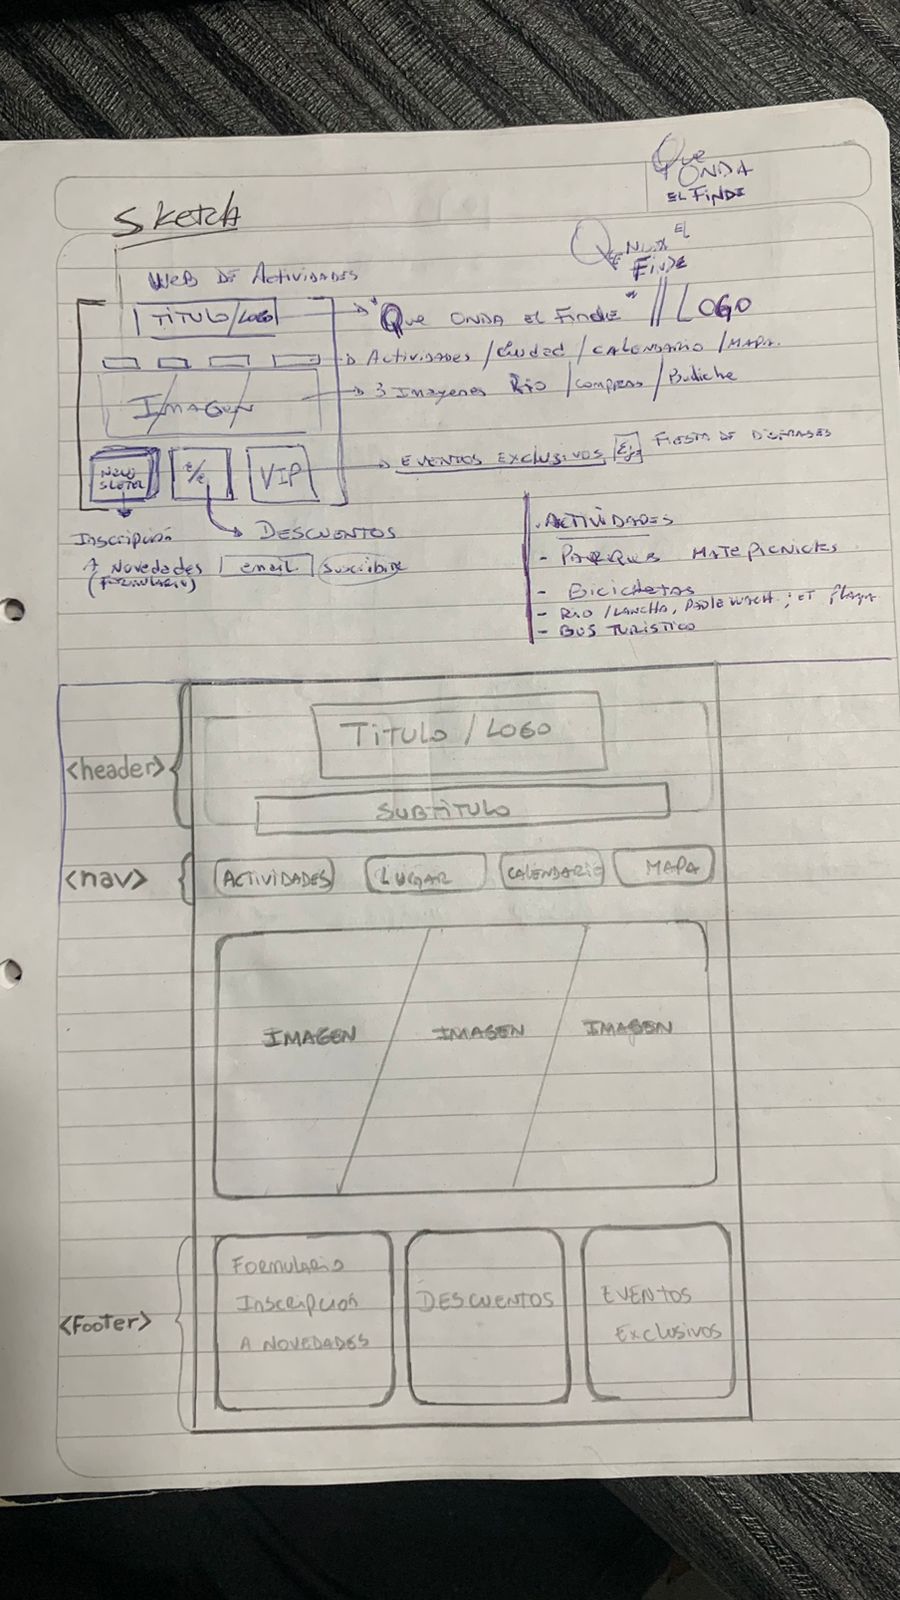 Que
ONDA
EL FINDE
Sketch
EL
FINDE
WEB DE Actividades
TITULO/LOGO
"Que ONDA el Finde" // LOGO
Actividades /Ciudad /CALENDARIO /MAPA.
IMAGEN
3 Imagenes Rio /compras /Buliche
NEWS
SLETER
VIP
EVENTOS EXCLUSIVOS Ej: FIESTA DE DISFRASES
Inscripción
DESCUENTOS
A Novedades
(FORMULARIO)
email
Suscribite
. ACTIVIDADES
- PARQUES MATE PICNICKS
- Bicicletas
- RIO /LANCHA,
- BUS TURISTICO
<header>
TITULO / LOGO
SUBTITULO
<nav>
ACTIVIDADES
LUGAR
CALENDARIO
MAPA
IMAGEN
IMAGEN
IMAGEN
<Footer>
Formulario
Inscripción
A NOVEDADES
DESCUENTOS
EVENTOS
Exclusivos